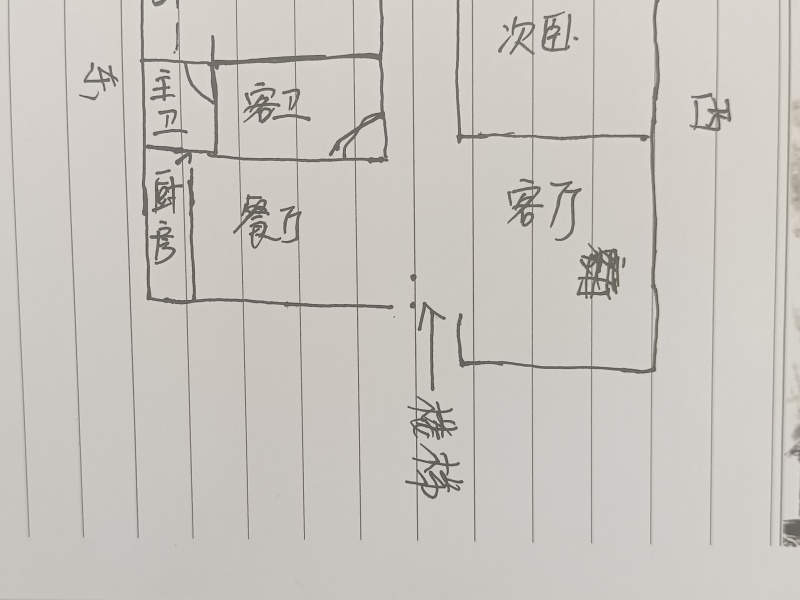 次卧
东
主卫
客卫
西
厨房
餐厅
客厅
楼梯